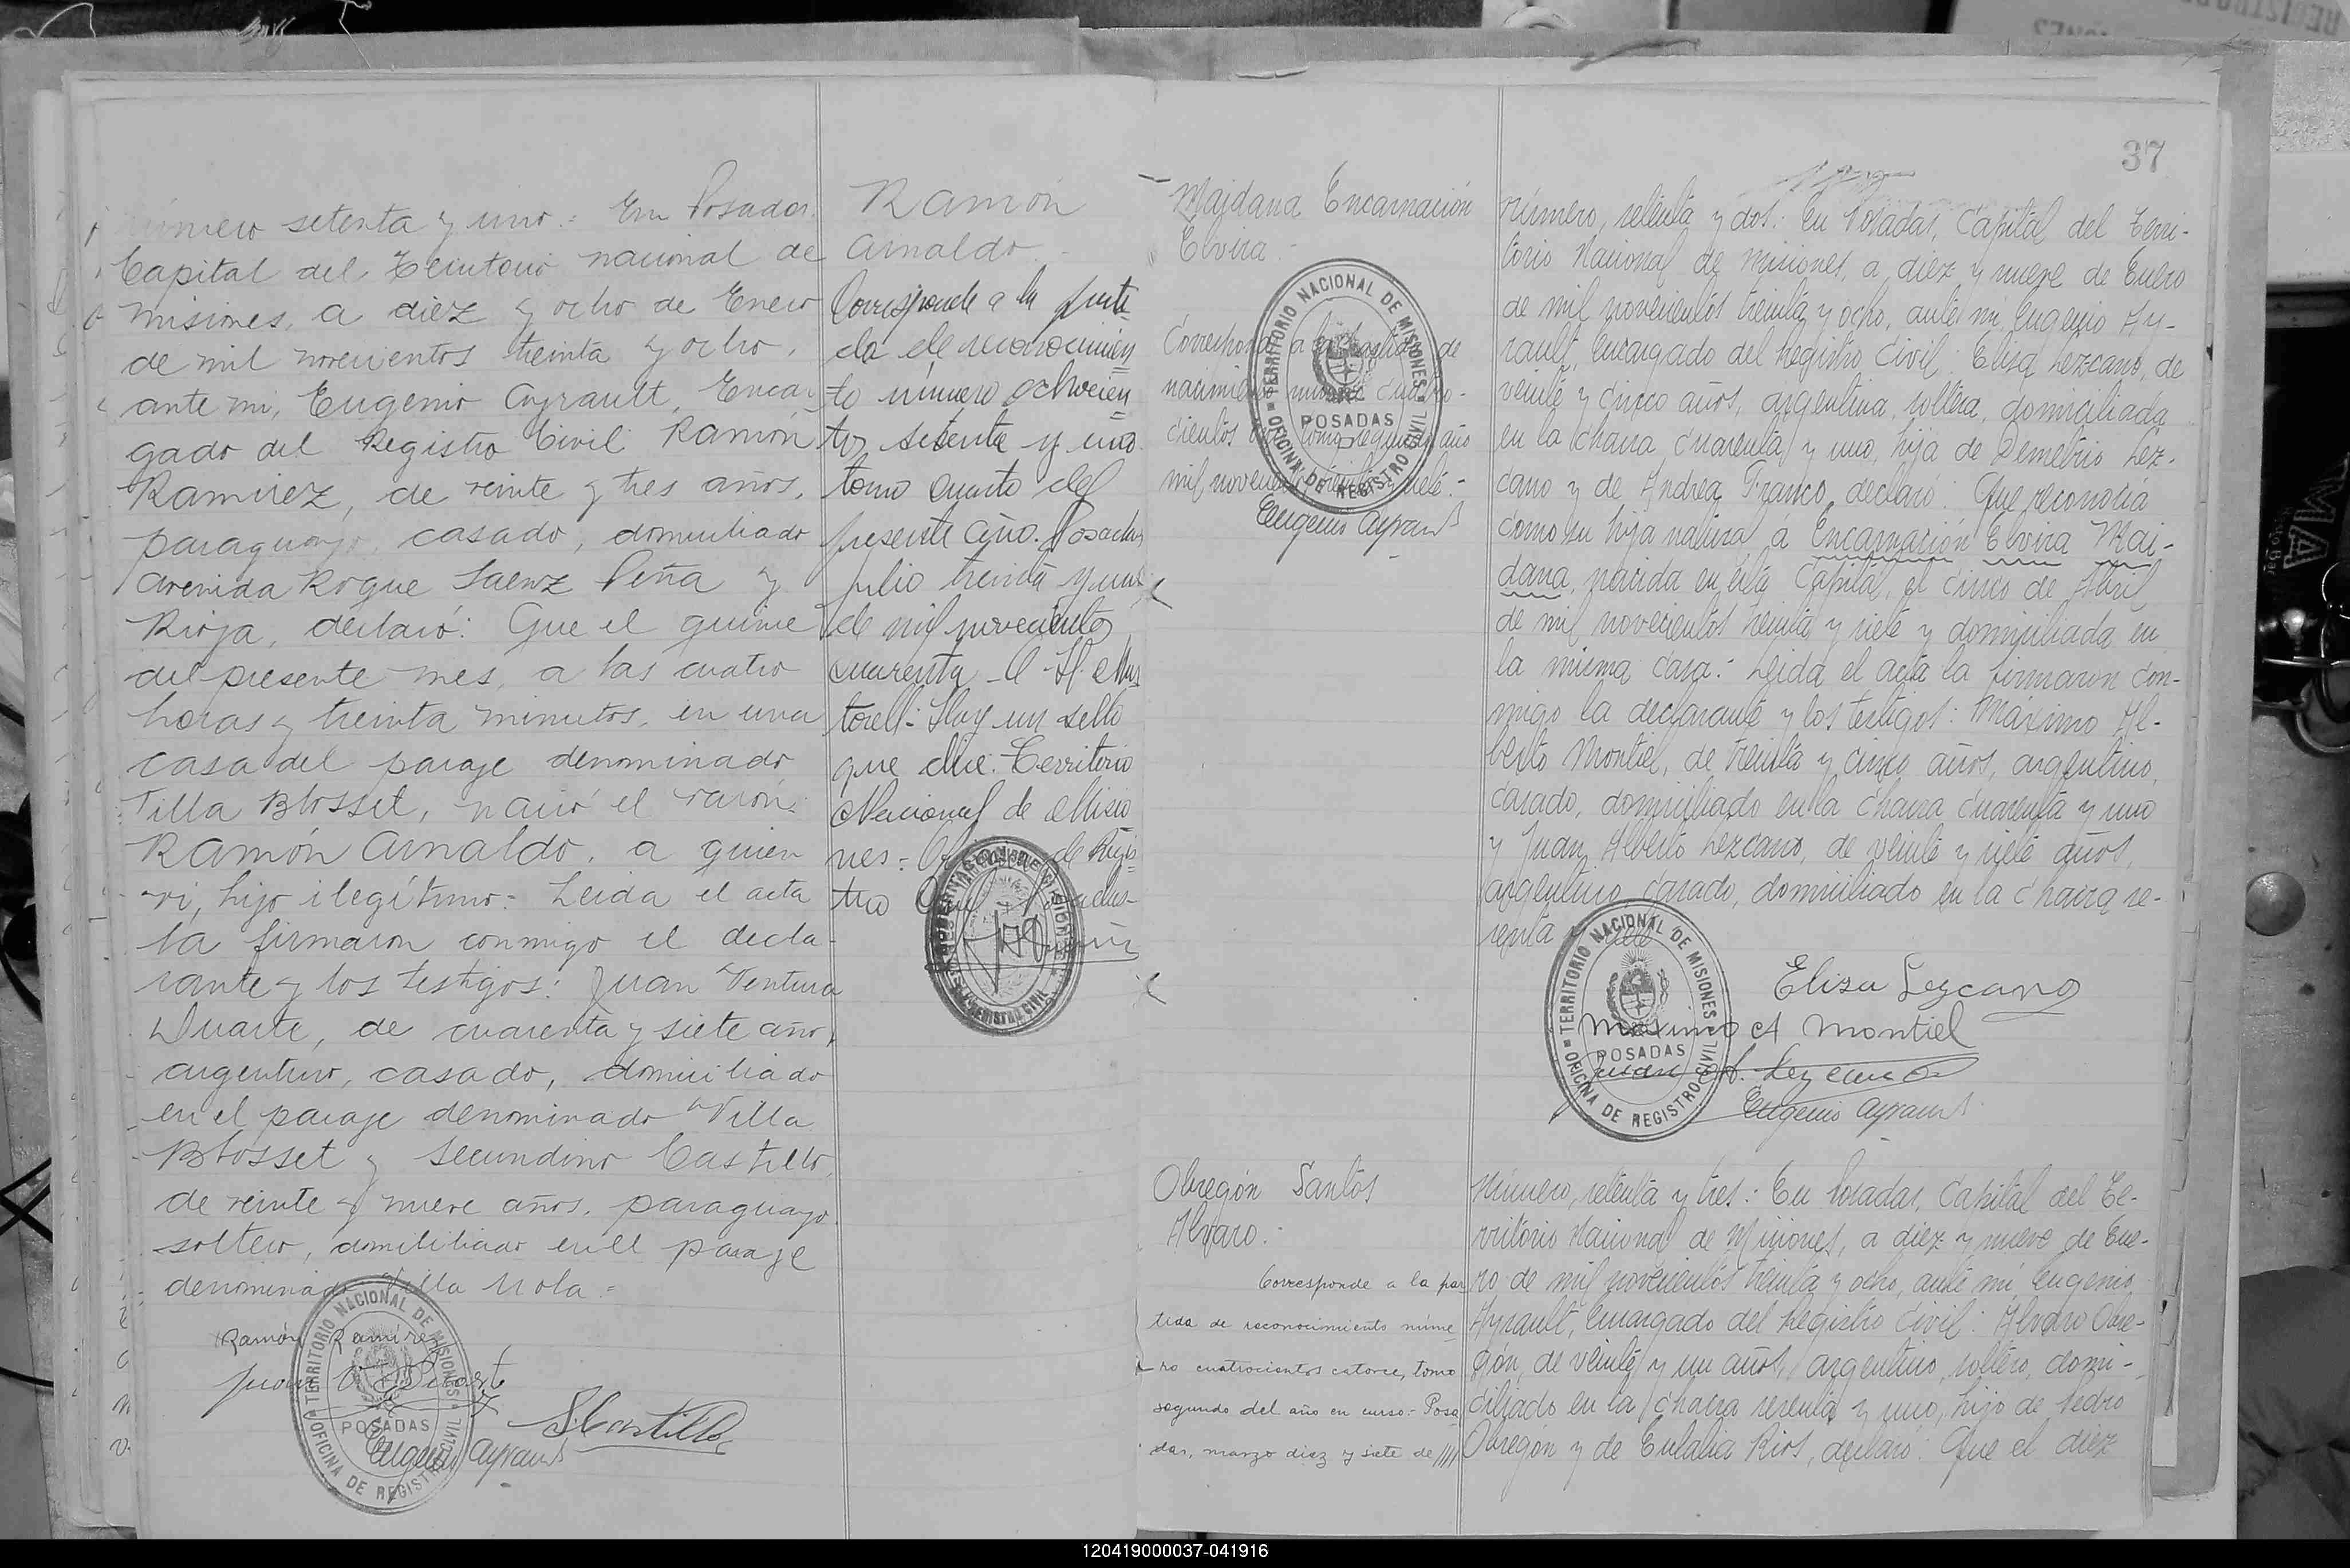 número setenta y uno: En Posadas
Capital del Territorio nacional de
misiones, a diez y ocho de Enero
de mil novecientos treinta y ocho,
ante mi, Eugenio Ayrault, Encar-
gado del Registro Civil: Ramón
Ramirez, de veinte y tres años,
paraguayo, casado, domiciliado
avenida Roque Saenz Peña y
Rioja, declaró: Que el quince
del presente mes, a las cuatro
horas y treinta minutos, en una
casa del paraje denominado
Villa Blosset, nació el varón
Ramón Arnaldo, a quien
vi, hijo ilegítimo: Leida el acta
la firmaron conmigo el decla-
rante y los testigos: Juan Ventura
Duarte, de cuarenta y siete años,
argentino, casado, domiciliado
en el paraje denominado Villa
Blosset y Secundino Castillo,
de veinte y nueve años, paraguayo
soltero, domiciliado en el paraje
denominado Villa Urola=
Ramón Ramirez
Juan V Duarte
S. Castillo
Eugenio Ayrault
TERRITORIO NACIONAL DE MISIONES
POSADAS
OFICINA DE REGISTRO CIVIL
Ramón
Arnaldo.-
Corresponde a la parti
da de reconocimien
to número ochocien
tos setenta y uno
tomo cuarto del
presente año. Posadas
julio treinta y uno
de mil novecientos
cuarenta
torell: Hay un sello
que dice: Territorio
Nacional de Misio
nes: de Regis
tro
Maidana Encarnación
Elvira.-
Corresponde a la partida de
nacimiento número cuatro-
cientos tomo segundo año
mil novecientos treinta y siete.-
Eugenio Ayrault
TERRITORIO NACIONAL DE MISIONES
POSADAS
OFICINA DE REGISTRO CIVIL
37
número, setenta y dos: En Posadas, Capital del Terri-
torio Nacional de Misiones, a diez y nueve de Enero
de mil novecientos treinta y ocho, ante mi, Eugenio Ay-
rault, Encargado del Registro Civil: Elisa Lezcano, de
veinte y cinco años, argentina, soltera, domiciliada
en la chacra cuarenta y uno, hija de Demetrio Lez-
cano y de Andrea Franco, declaró: Que reconocía
como su hija natural a Encarnación Elvira Mai-
dana, nacida en esta Capital, el cinco de Abril
de mil novecientos treinta y siete y domiciliada en
la misma casa: Leida el acta la firmaron con-
migo la declarante y los testigos: Maximo Al-
berto Montiel, de treinta y cinco años, argentino,
casado, domiciliado en la chacra cuarenta y uno
y Juan Alberto Lezcano, de veinte y siete años,
argentino, casado, domiciliado en la chacra se-
senta y siete
Elisa Lezcano
Maximo A Montiel
Juan A. Lezcano
Eugenio Ayrault
TERRITORIO NACIONAL DE MISIONES
POSADAS
OFICINA DE REGISTRO CIVIL
Obregón Santos
Alvaro.-
Corresponde a la par
tida de reconocimiento núme
ro cuatrocientos catorce, tomo
segundo del año en curso.- Posa
das, marzo diez y siete de ////
Número, setenta y tres: En Posadas, Capital del Te-
rritorio Nacional de Misiones, a diez y nueve de Ene-
ro de mil novecientos treinta y ocho, ante mi, Eugenio
Ayrault, Encargado del Registro Civil: Alvaro Obre-
gón, de veinte y un años, argentino, soltero, domi-
ciliado en la chacra sesenta y uno, hijo de Pedro
Obregon y de Eulalia Rios, declaró: Que el diez
120419000037-041916